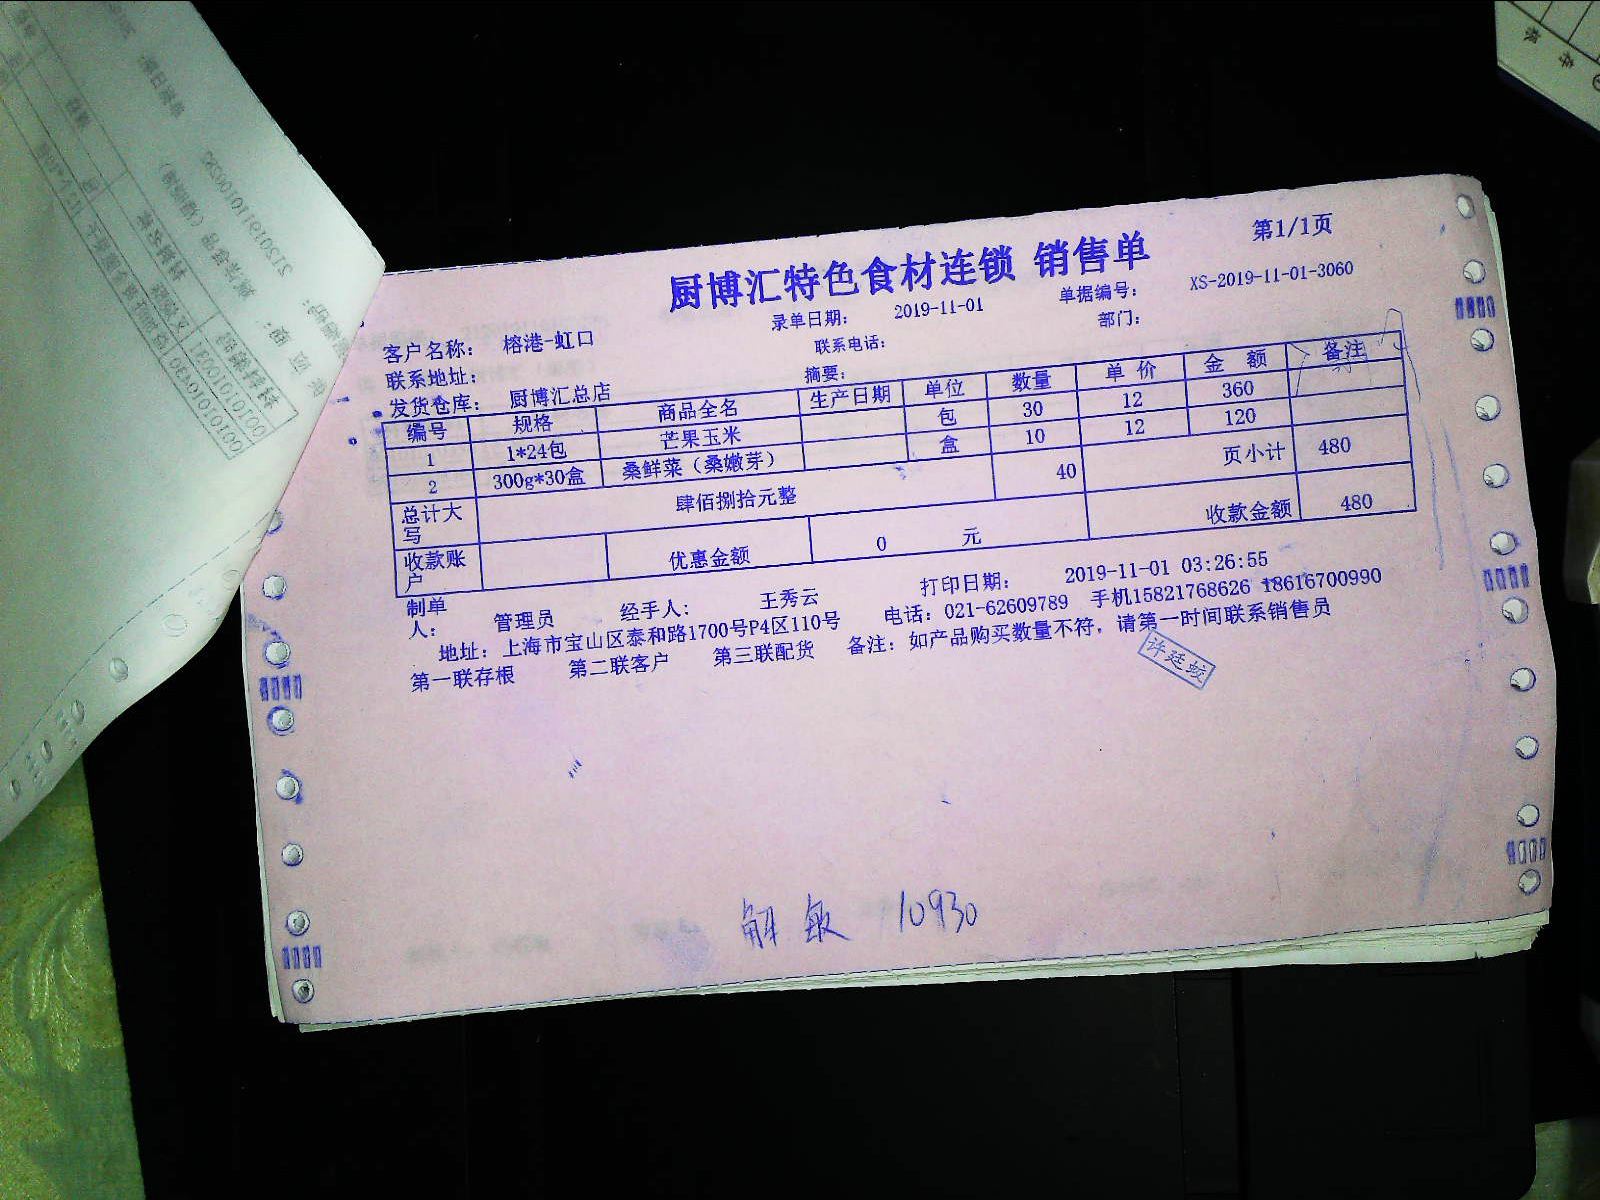 第1/1页
厨博汇特色食材连锁 销售单
录单日期： 2019-11-01 单据编号： XS-2019-11-01-3060
客户名称： 榕港-虹口 联系电话： 部门：
联系地址： 摘要：
发货仓库： 厨博汇总店
编号 规格 商品全名 生产日期 单位 数量 单 价 金 额 备注
1 1*24包 芒果玉米 包 30 12 360
2 300g*30盒 桑鲜菜（桑嫩芽） 盒 10 12 120
总计大写 肆佰捌拾元整 40 页小计 480
收款账户 优惠金额 0 元 收款金额 480
制单人： 管理员 经手人： 王秀云 打印日期： 2019-11-01 03:26:55
地址：上海市宝山区泰和路1700号P4区110号 电话：021-62609789 手机15821768626 18616700990
第一联存根 第二联客户 第三联配货 备注：如产品购买数量不符，请第一时间联系销售员
许廷蛟
解敏 10930